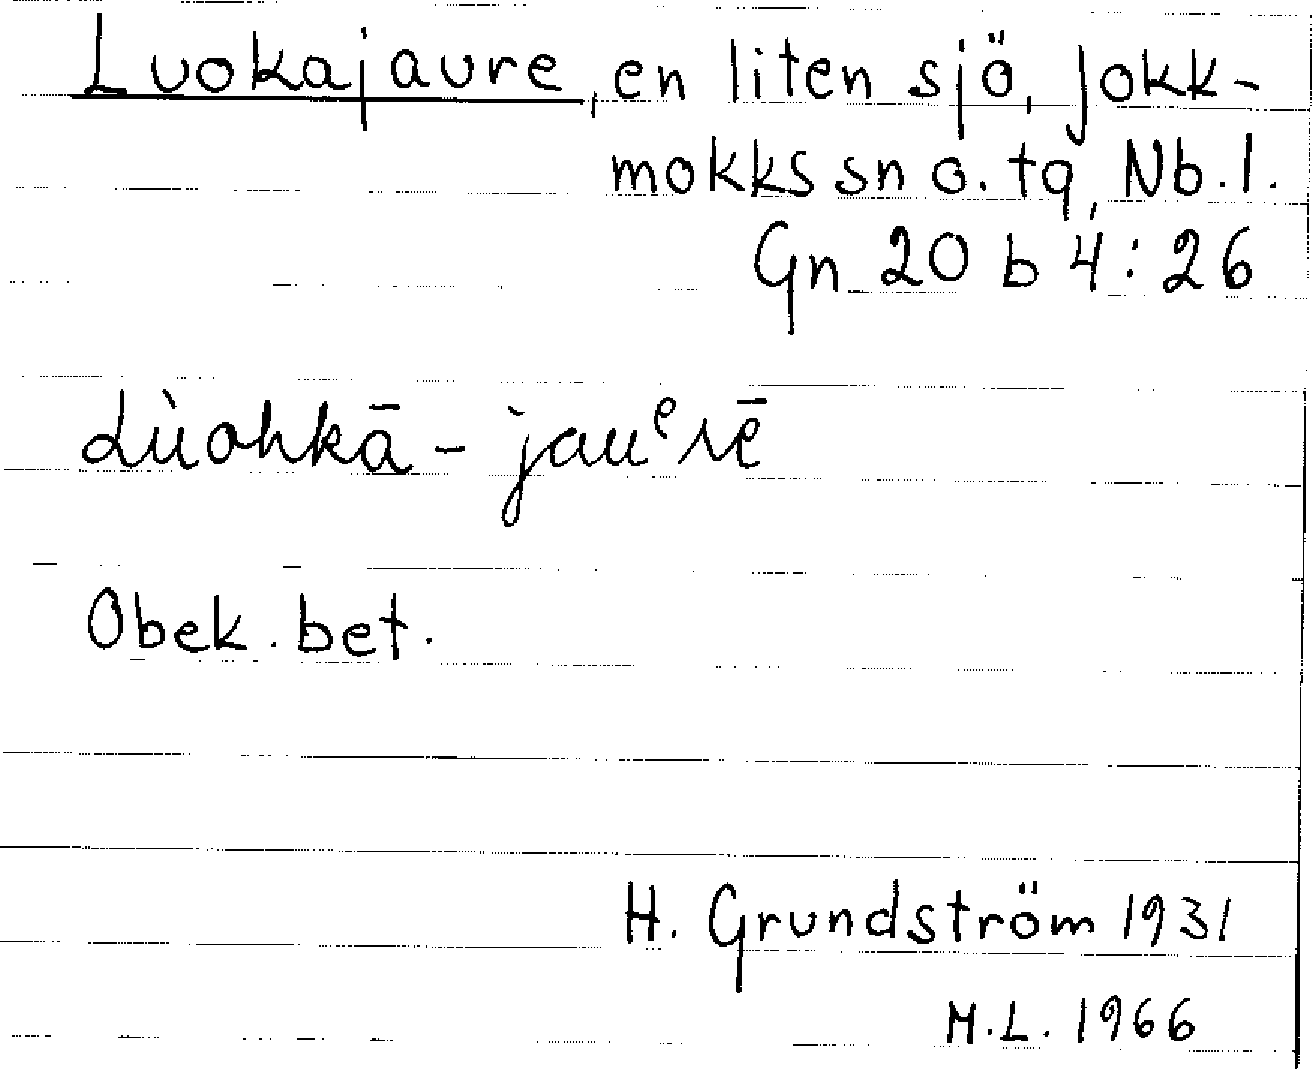 Luokajaure, en liten sjö, Jokk-
mokks sn o. tg, Nb. l.
Gn 20 b 4:26
Lùohkā - jauᵉrē
Obek. bet.
H. Grundström 1931
M.L. 1966